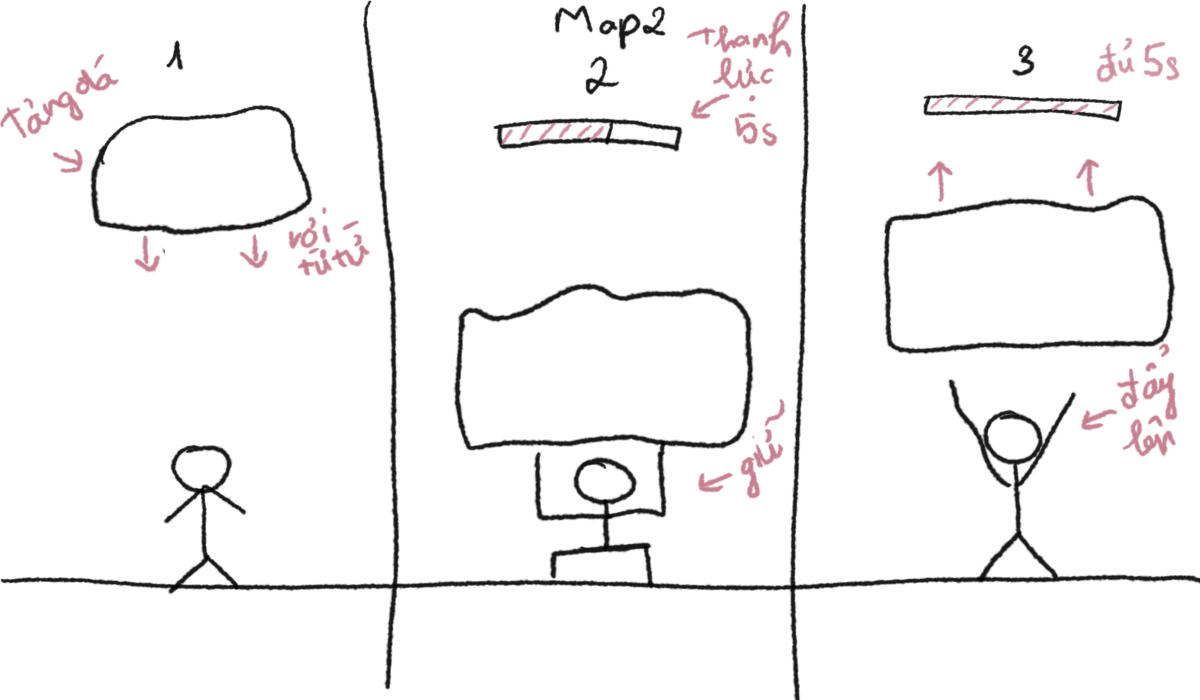 Map2
1
Tảng đá
rơi
từ từ
2
Thanh
lực
5s
giữ
3
đủ 5s
đẩy
lên